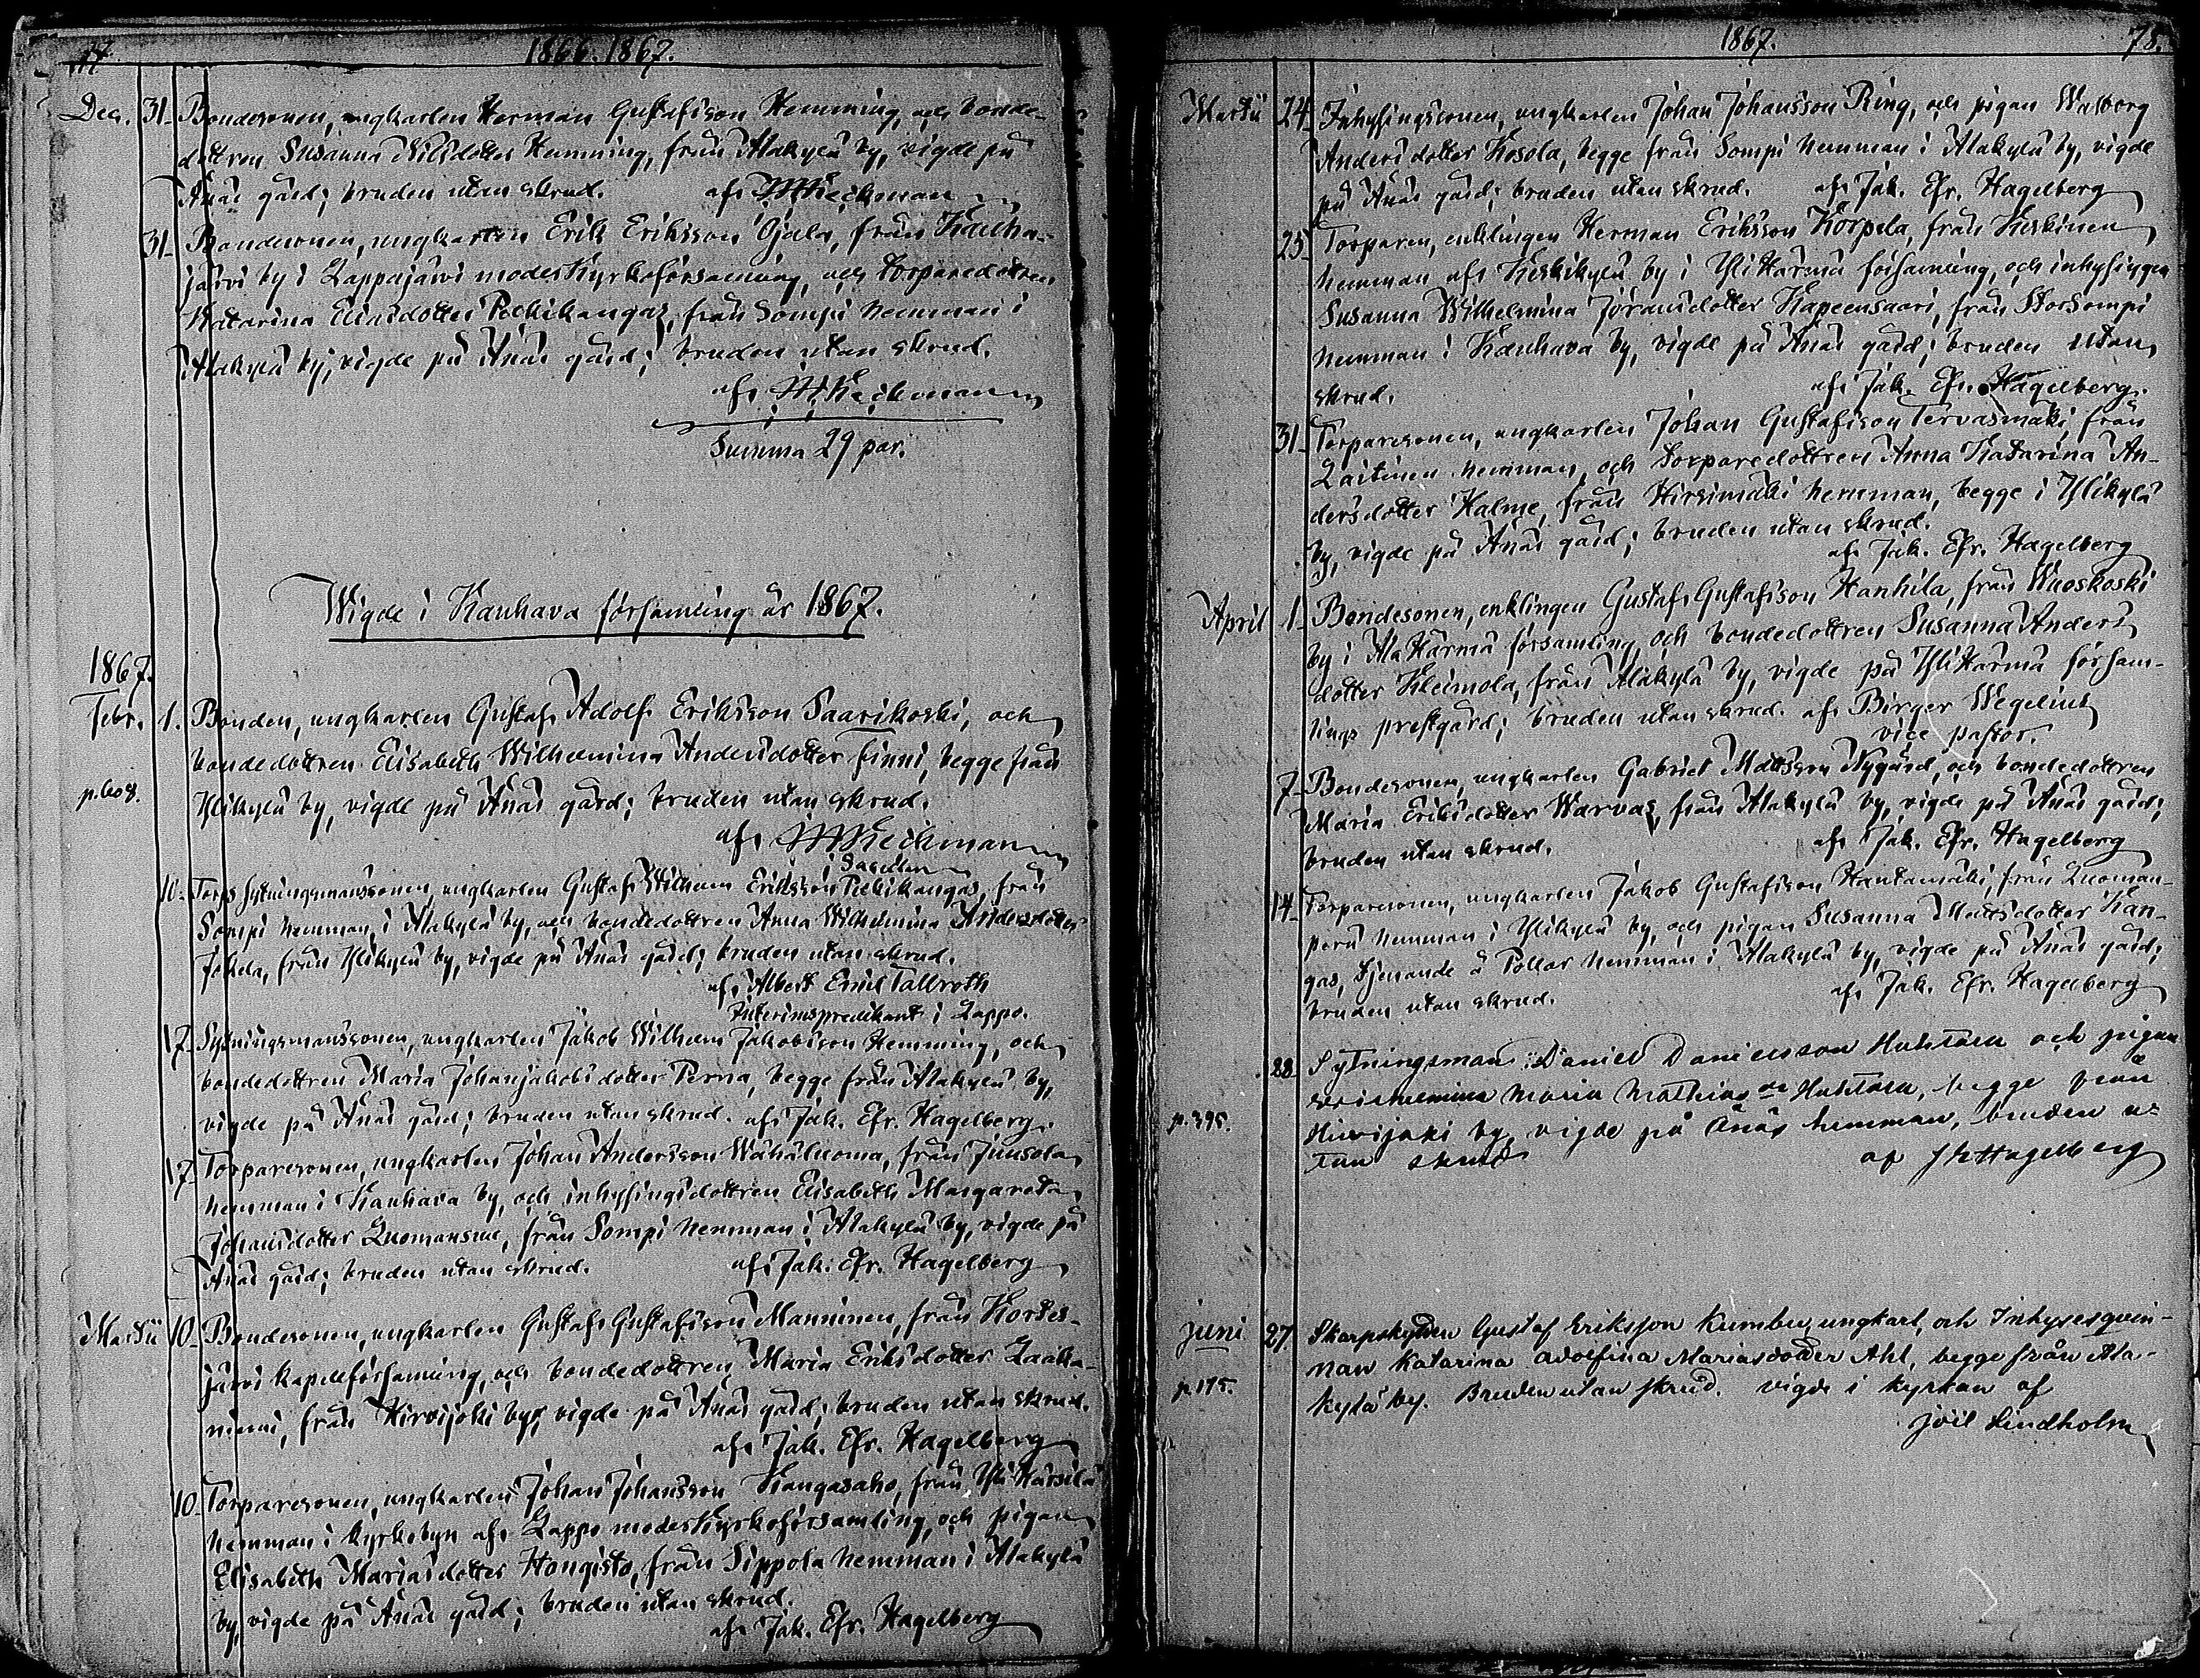 77.
1866. 1867.
Dec. 31. Bondesonen, ungkarlen Herman Gustafsson Hemming, och bonde-
dottren Susanna Nilsdotter Hemming, från Alakylä by, vigde på
Anäs gård; bruden utan skrud. af
31. Bondesonen, ungkarlen Erik Eriksson Ojala, från Kauha-
järvi by i Lappajärvi moderkyrkoförsamling, och torparedottren
Katarina Eliasdotter Pelkikangas, från Sompi hemman i
Alakylä by, vigde på Anäs gård; bruden utan skrud.
af
Summa 29 par.
Wigde i Kauhava församling år 1867.
1867.
Febr. 1. Bonden, ungkarlen Gustaf Adolf Eriksson Saarikoski, och
bondedottren Elisabeth Wilhelmina Andersdotter Finni, begge från
p. 608. Ylikylä by, vigde på Anäs gård; bruden utan skrud.
af
10. Torpsytningsmanssonen, ungkarlen Gustaf Wilhelm Eriksson Pelkikangas, från
Sompi hemman i Alakylä by, och bondedottren Anna Wilhelmina Andersdotter
Jokela, från Ylikylä by, vigde på Anäs gård; bruden utan skrud.
af Albert Emil Tallroth
Interimspredikant i Lappo.
17. Sytningsmanssonen, ungkarlen Jakob Wilhelm Jakobsson Hemming, och
bondedottren Maria Johanjakobsdotter Perna, begge från Alakylä by,
vigde på Anäs gård; bruden utan skrud. af Jak. Efr. Hagelberg.
17. Torparesonen, ungkarlen Johan Andersson Wähäluoma, från Juusola
hemman i Kauhava by, och inhysingsdottren Elisabeth Margareta
Johansdotter Luomansuu, från Sompi hemman i Alakylä by, vigde på
Anäs gård; bruden utan skrud. af Jak. Efr. Hagelberg
Martii 10. Bondesonen, ungkarlen Gustaf Gustafsson Manninen, från Kortes-
järvi kapellförsamling, och bondedottren Maria Eriksdotter
niemi, från Hirvijoki by, vigde på Anäs gård; bruden utan skrud.
af Jak. Efr. Hagelberg
10. Torparesonen, ungkarlen Johan Johansson Kangasaho, från Yli Härsilä
hemman i kyrkobyn af Lappo moderkyrkoförsamling, och pigan
Elisabeth Mariasdotter Hongisto, från Sippola hemman i Alakylä
by, vigde på Anäs gård; bruden utan skrud.
af Jak. Efr. Hagelberg
1867.
78.
Martii 24. Inhysingssonen, ungkarlen Johan Johansson Ring, och pigan Walborg
Andersdotter Kosola, begge från Sompi hemman i Alakylä by, vigde
på Anäs gård; bruden utan skrud. af Jak. Efr. Hagelberg
25. Torparen, enklingen Herman Eriksson Korpela, från Keskinen
hemman af Keskikylä by i Yli Härmä församling, och inhysingen
Susanna Wilhelmina Göransdotter Kapeensaari, från Storsompi
hemman i Kauhava by, vigde på Anäs gård; bruden utan
skrud. af Jak. Efr. Hagelberg.
31. Torparesonen, ungkarlen Johan Gustafsson Tervasmäki, från
Laitinen hemman, och torparedottren Anna Katarina An-
dersdotter Halme, från Hirsimäki hemman, begge i Ylikylä
by, vigde på Anäs gård; bruden utan skrud.
af Jak. Efr. Hagelberg
April 1. Bondesonen, enklingen Gustaf Gustafsson Hanhila, från Wuoskoski
by i Ala Härmä församling, och bondedottren Susanna Anders
dotter Kleimola, från Alakylä by, vigde på Yli Härmä försam-
lings prestgård; bruden utan skrud. af Birger Wegelius
vice pastor.
7. Bondesonen, ungkarlen Gabriel Mattsson Nygård, och bondedottren
Maria Eriksdotter Warvas, från Alakylä by, vigde på Anäs gård;
bruden utan skrud. af Jak. Efr. Hagelberg
14. Torparesonen, ungkarlen Jakob Gustafsson Hautamäki, från Luoman-
perä hemman i Ylikylä by, och pigan Susanna Mattsdotter Kan-
gas, tjenande å Pollar hemman i Alakylä by, vigde på Anäs gård;
bruden utan skrud. af Jak. Efr. Hagelberg
28. Sytningsman Daniel Danielsson Huhtala och pigan
Wilhelmina Maria Mathias dr Huhtala, begge från
p. 395. Hirvijoki by, vigde på Anäs hemman, bruden u-
tan skrud af J E Hagelberg
Juni 27. Skarpskytten Gustaf Eriksson Kumbu, ungkarl, och Inhysesqvin-
nan Katarina Adolfina Mariasdotter Ahl, begge från Ala-
p. 175. kylä by. Bruden utan skrud. vigde i kyrkan af
Joel Lindholm